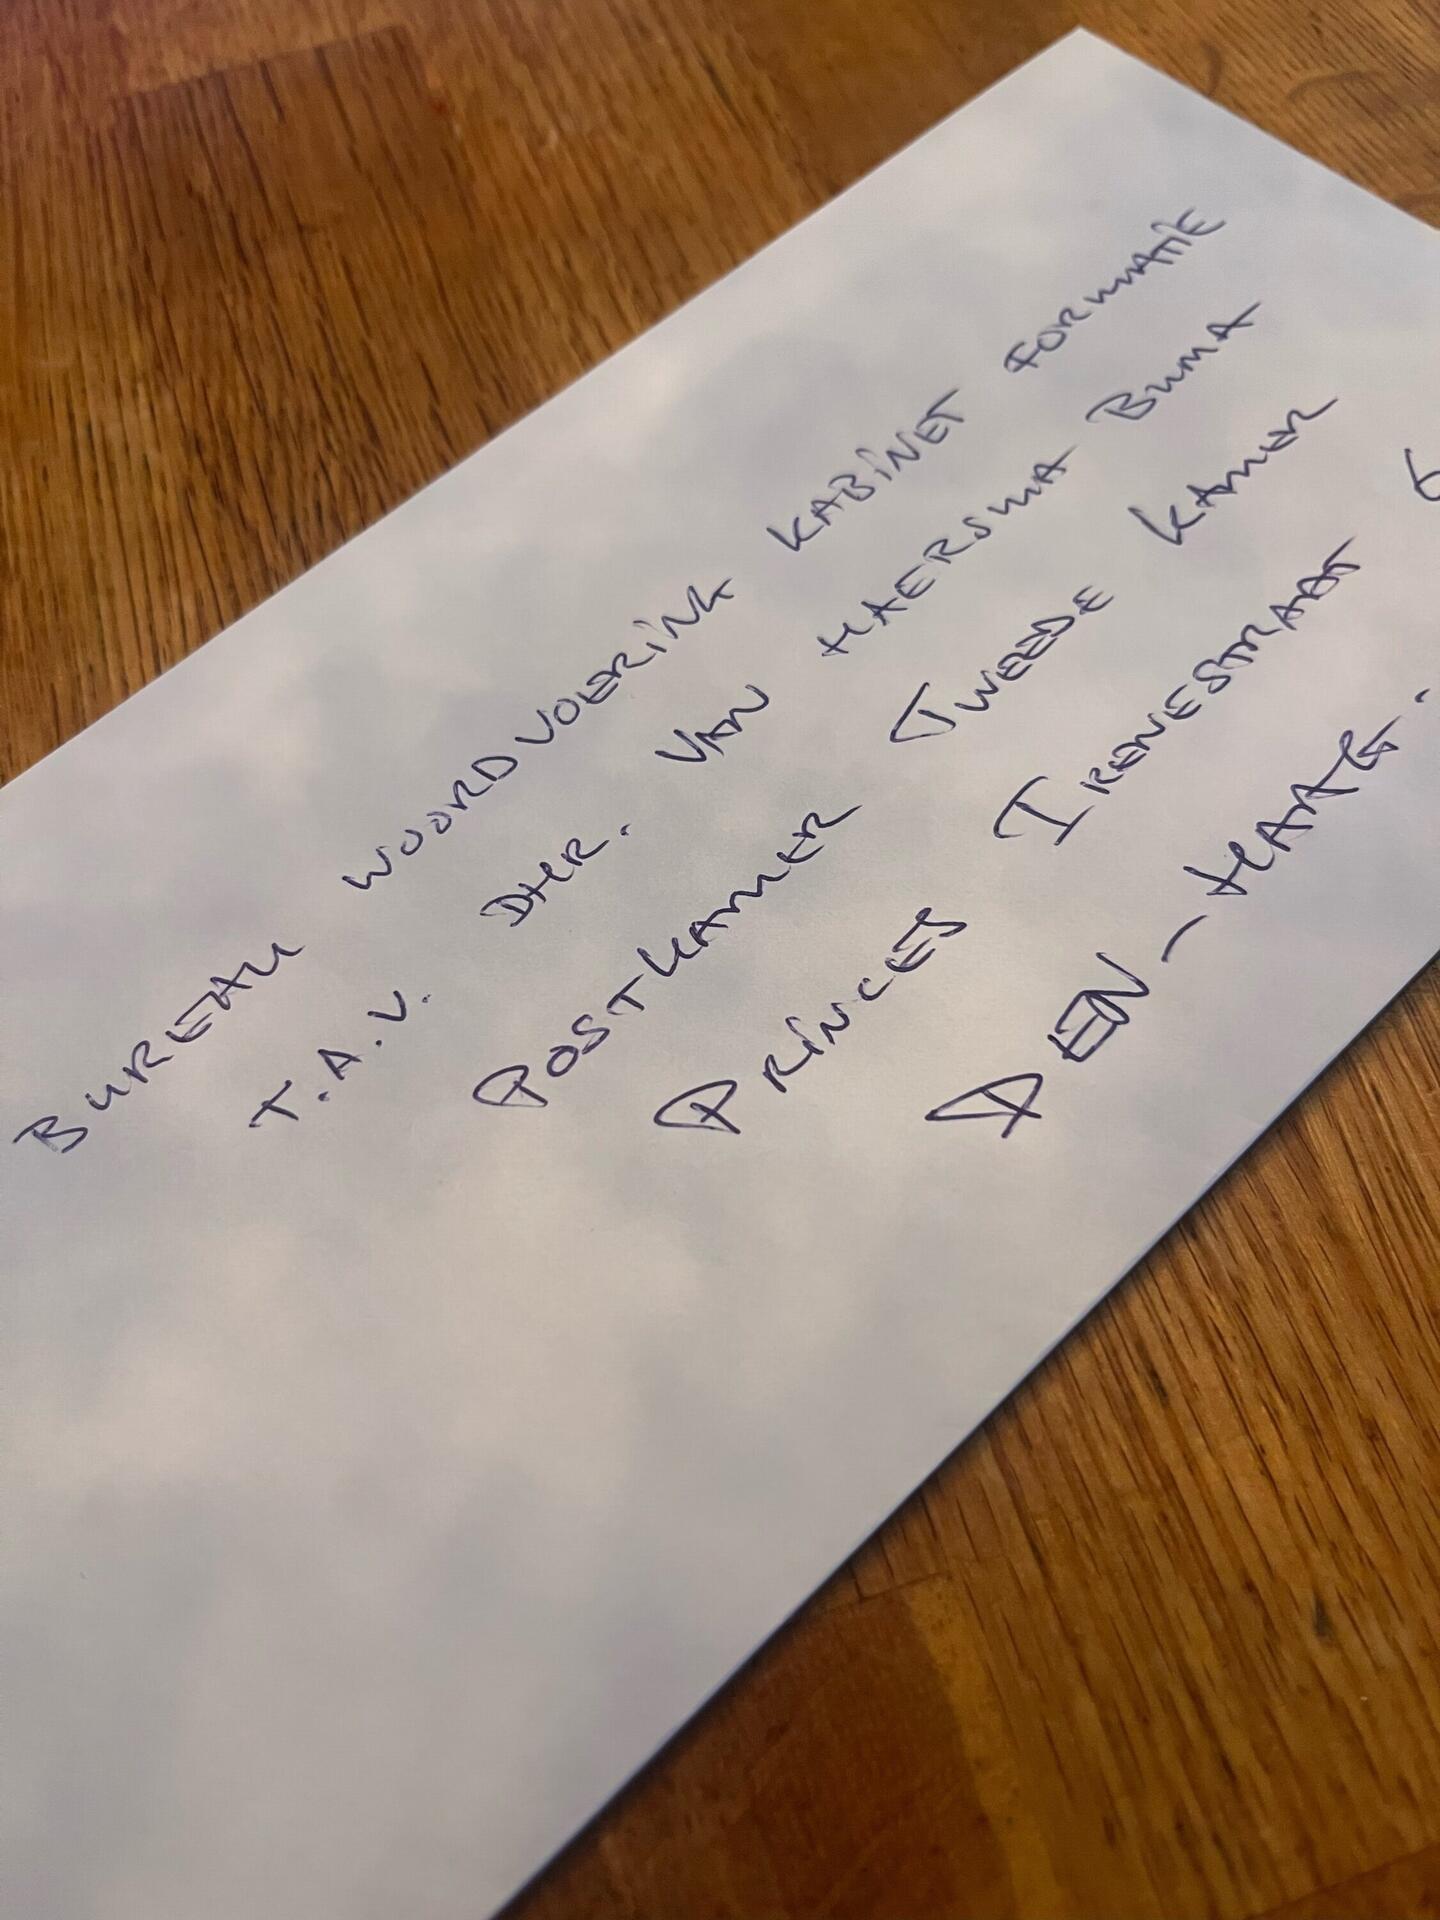 BUREAU WOORDVOERING KABINET FORMATIE
T.A.V. DHR. VAN HAERSMA BUMA
POSTKAMER TWEEDE KAMER
PRINCES IRENESTRAAT 6
DEN-HAAG.